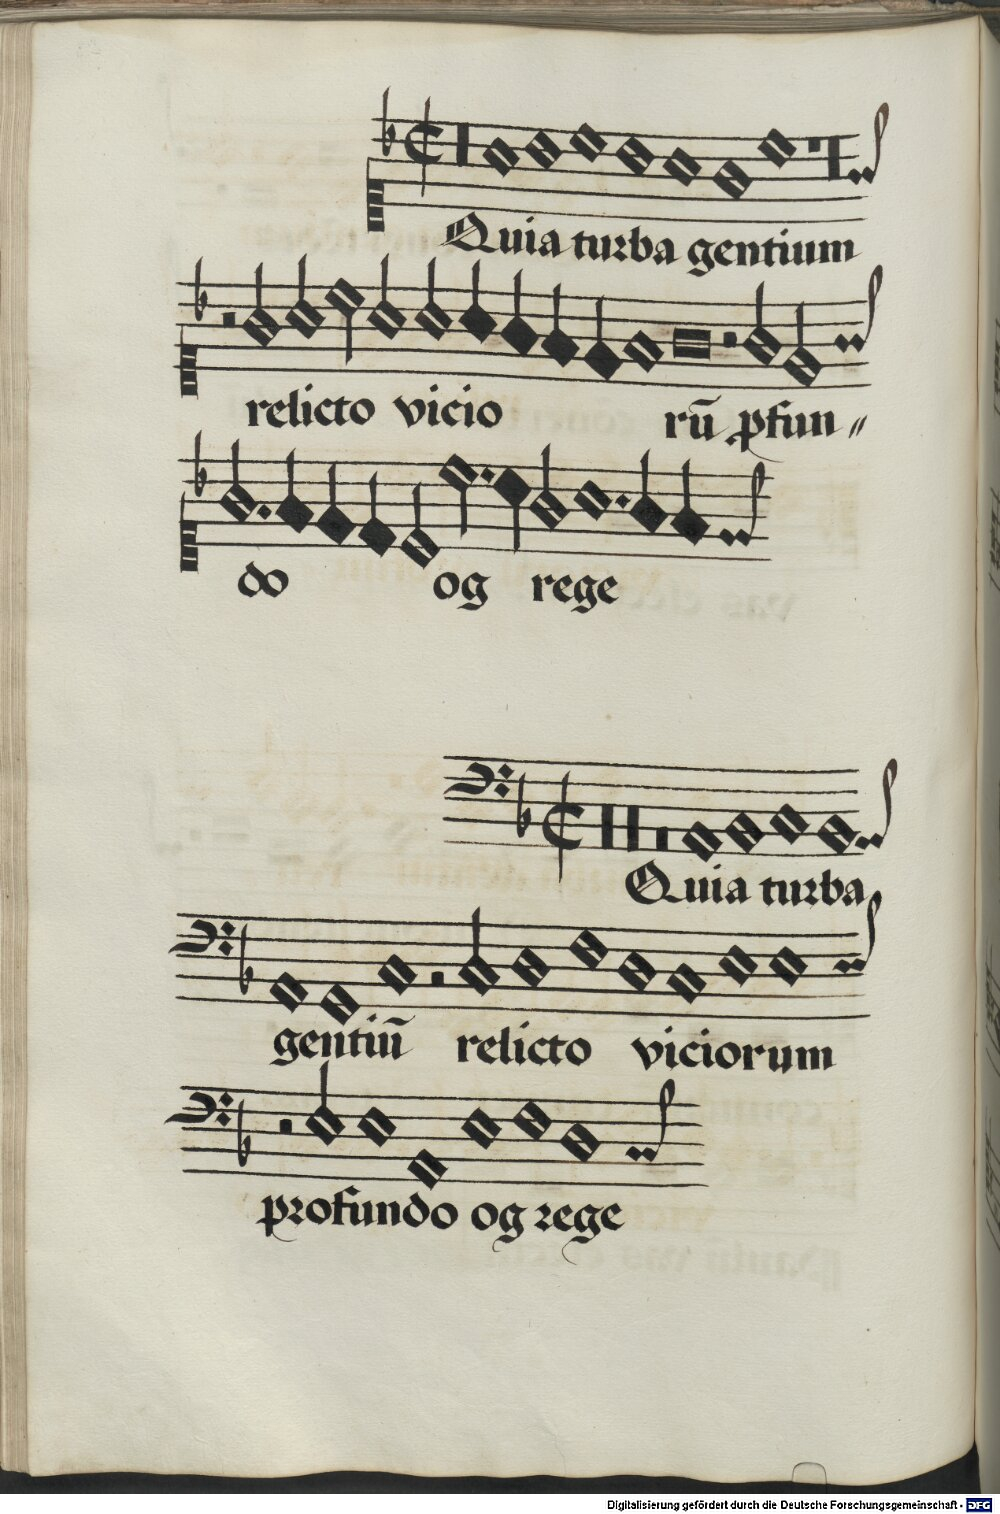 Quia turba gentium
relicto vicio rũ ꝓfun〃
do og rege
Quia turba
gentiũ relicto viciorum
profundo og rege
Digitalisierung gefördert durch die Deutsche Forschungsgemeinschaft - DFG